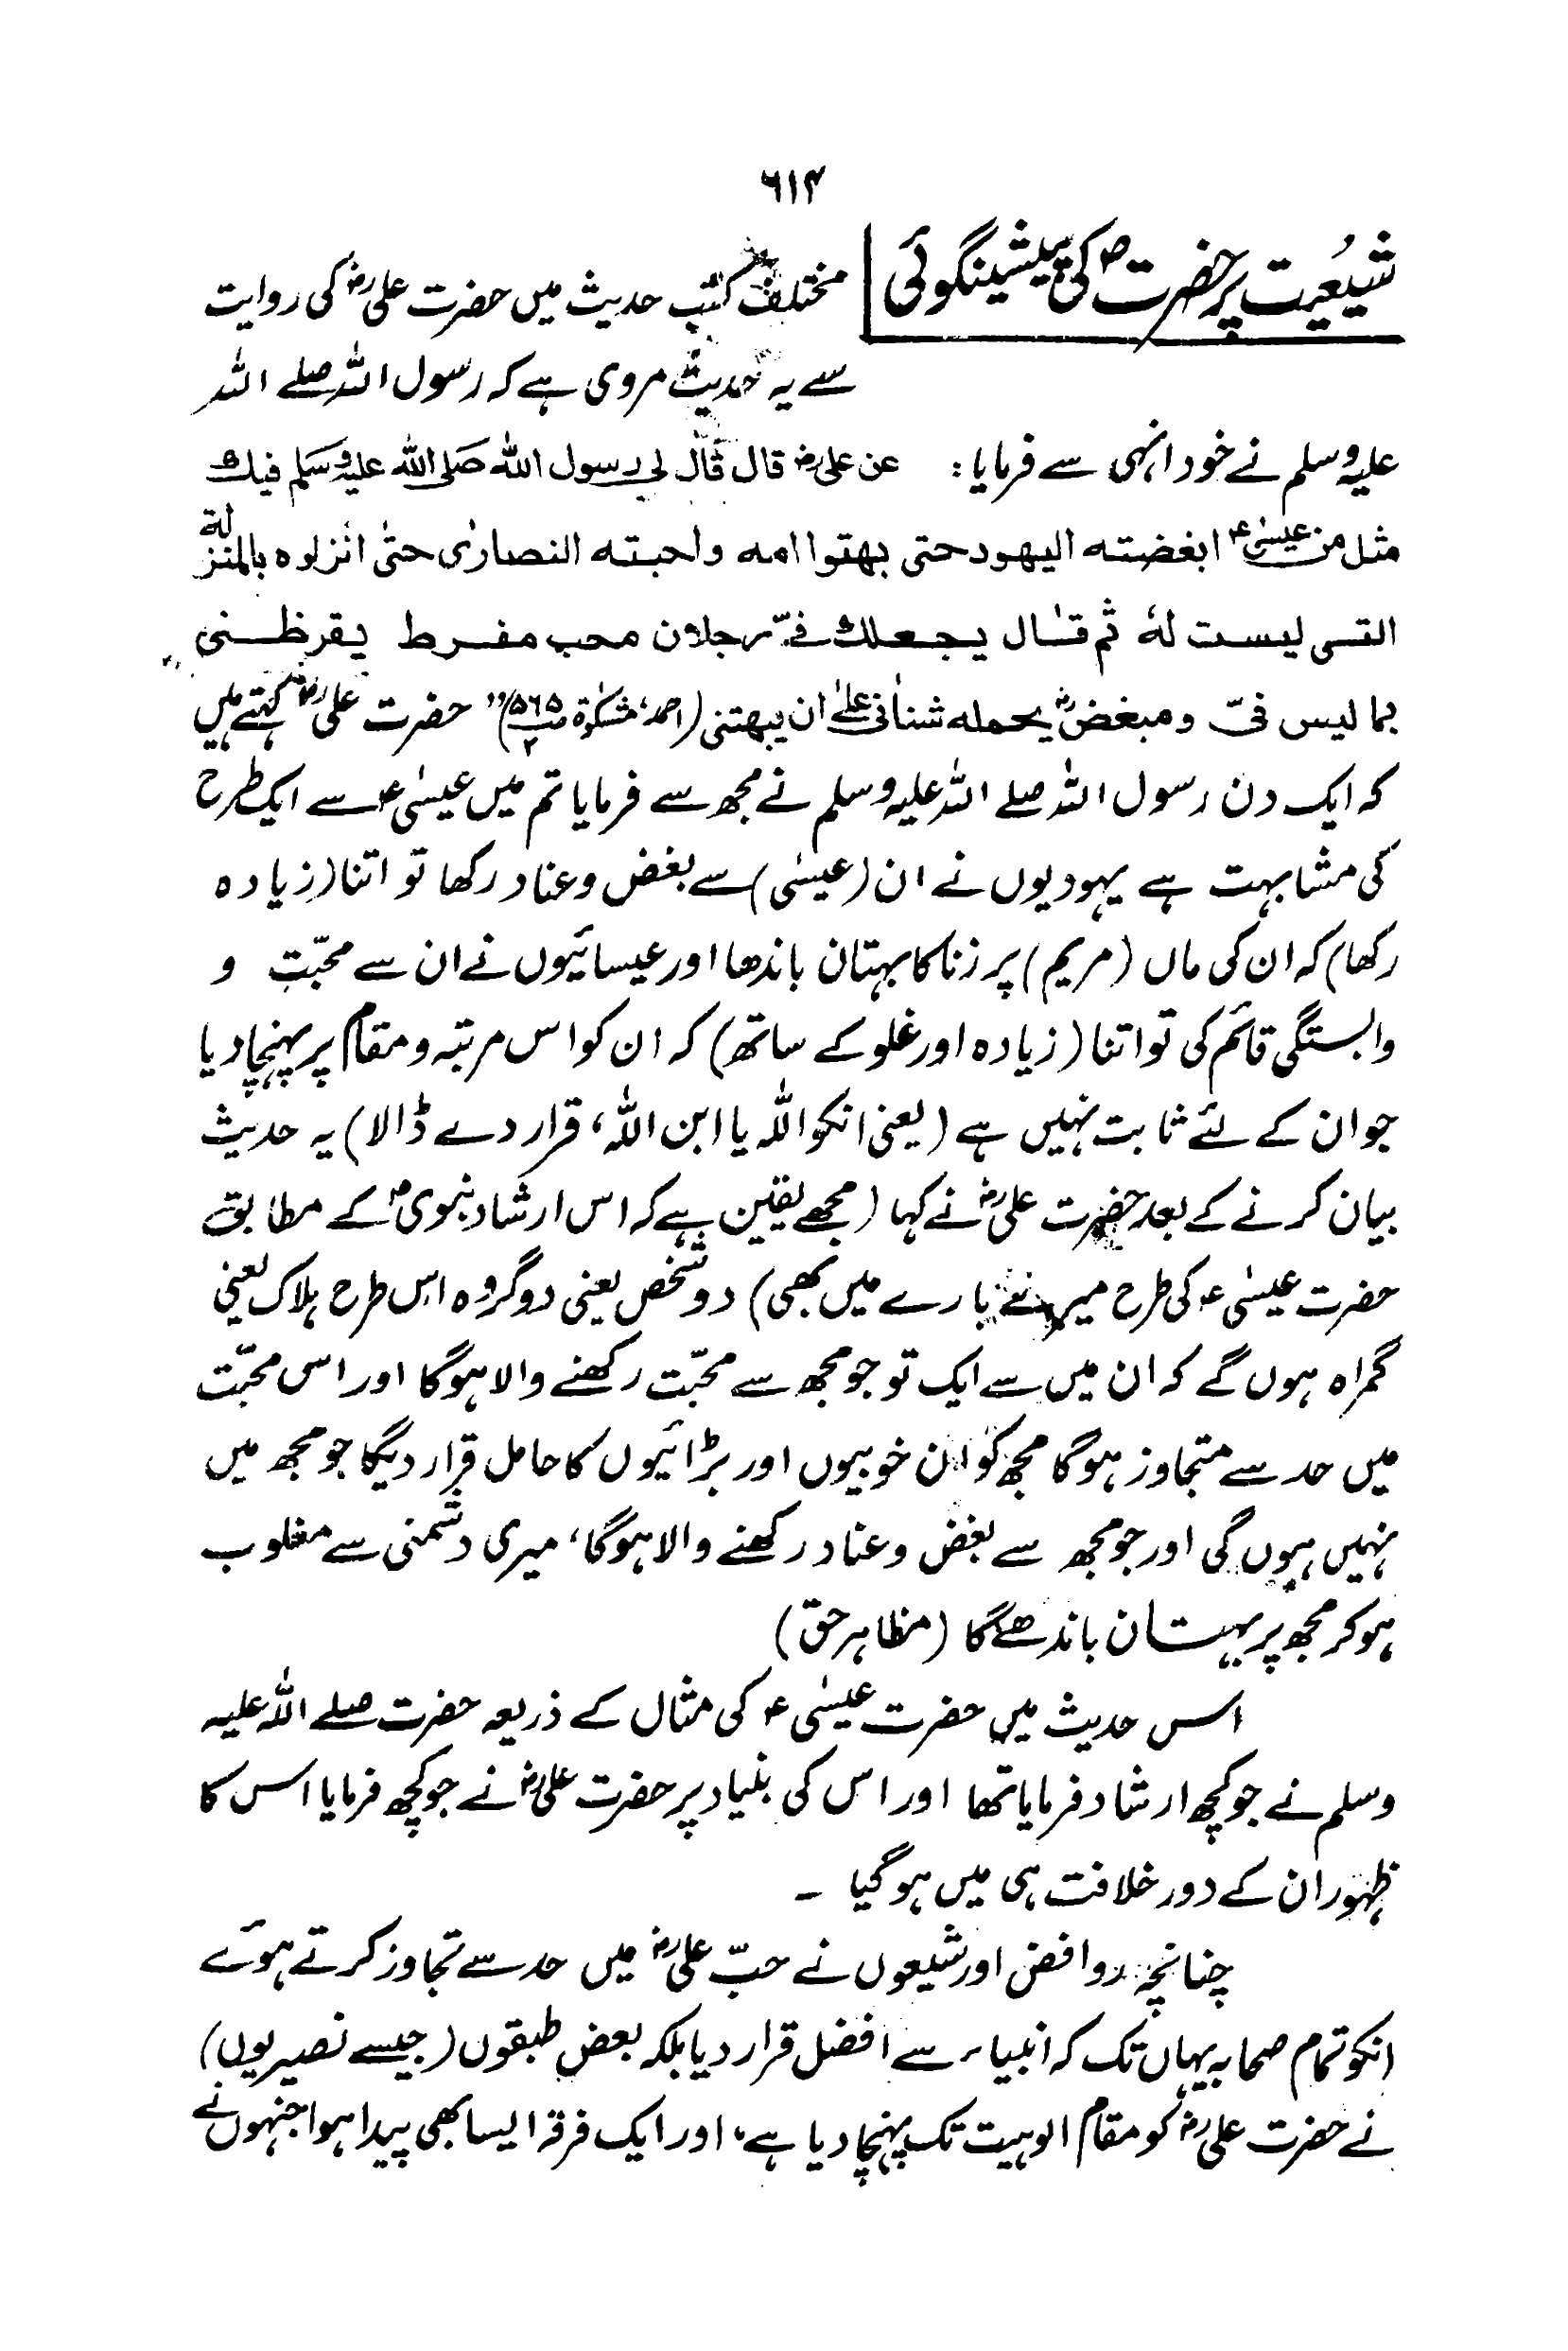 ۶۱۴
شیعیت پر حضرتؐ کی پیشینگوئی
مختلف کتب حدیث میں حضرت علیؓ کی روایت
سے یہ حدیث مروی ہے کہ رسول اللہ صلے اللہ
علیہ وسلم نے خود انہی سے فرمایا: عن علیؓ قال قال لی رسول اللہ صلی اللہ علیہ وسلم فیك
مثل من عیسیٰؑ ابغضته الیهود حتی بهتوا امه واحبته النصاریٰ حتیٰ انزلوه بالمنزلة
التی لیست لهٗ ثم قال یجعلك فیّ رجلان محب مفرط یقرظنی
بما لیس فیّ ومبغض یحمله شنانی علیٰ ان یبهتنی (احمد، مشکوٰۃ ص۵۶۵ ۲)" حضرت علیؓ کہتے ہیں
کہ ایک دن رسول اللہ صلے اللہ علیہ وسلم نے مجھ سے فرمایا تم میں عیسٰیؑ سے ایک طرح
کی مشابہت ہے یہودیوں نے ان (عیسٰی) سے بغض وعناد رکھا تو اتنا (زیادہ
رکھا) کہ ان کی ماں (مریم) پر زنا کا بہتان باندھا اور عیسائیوں نے ان سے محبّت و
وابستگی قائم کی تو اتنا (زیادہ اور غلو کے ساتھ) کہ ان کو اس مرتبہ و مقام پر پہنچا دیا
جو ان کے لئے ثابت نہیں ہے (یعنی انکو اللہ یا ابن اللہ، قرار دے ڈالا) یہ حدیث
بیان کرنے کے بعد حضرت علیؓ نے کہا (مجھے یقین ہے کہ اس ارشاد نبویؐ کے مطابق
حضرت عیسٰیؑ کی طرح میرے بارے میں بھی) دو شخص یعنی دو گروہ اس طرح ہلاک یعنی
گمراہ ہوں گے کہ ان میں سے ایک تو جو مجھ سے محبّت رکھنے والا ہوگا اور اس محبّت
میں حد سے متجاوز ہوگا مجھ کو ان خوبیوں اور بڑائیوں کا حامل قرار دیگا جو مجھ میں
نہیں ہوں گی اور جو مجھ سے بغض وعناد رکھنے والا ہوگا، میری دشمنی سے مغلوب
ہو کر مجھ پر بہتان باندھے گا (مظاہر حق)
اس حدیث میں حضرت عیسٰیؑ کی مثال کے ذریعہ حضرت صلے اللہ علیہ
وسلم نے جو کچھ ارشاد فرمایا تھا اور اس کی بنیاد پر حضرت علیؓ نے جو کچھ فرمایا اس کا
ظہور ان کے دور خلافت ہی میں ہو گیا ۔
چنانچہ روافض اور شیعوں نے حبّ علیؓ میں حد سے تجاوز کرتے ہوئے
انکو تمام صحابہ یہاں تک کہ انبیاء سے افضل قرار دیا بلکہ بعض طبقوں (جیسے نصیریوں)
نے حضرت علیؓ کو مقام الوہیت تک پہنچا دیا ہے، اور ایک فرقہ ایسا بھی پیدا ہوا جنہوں نے